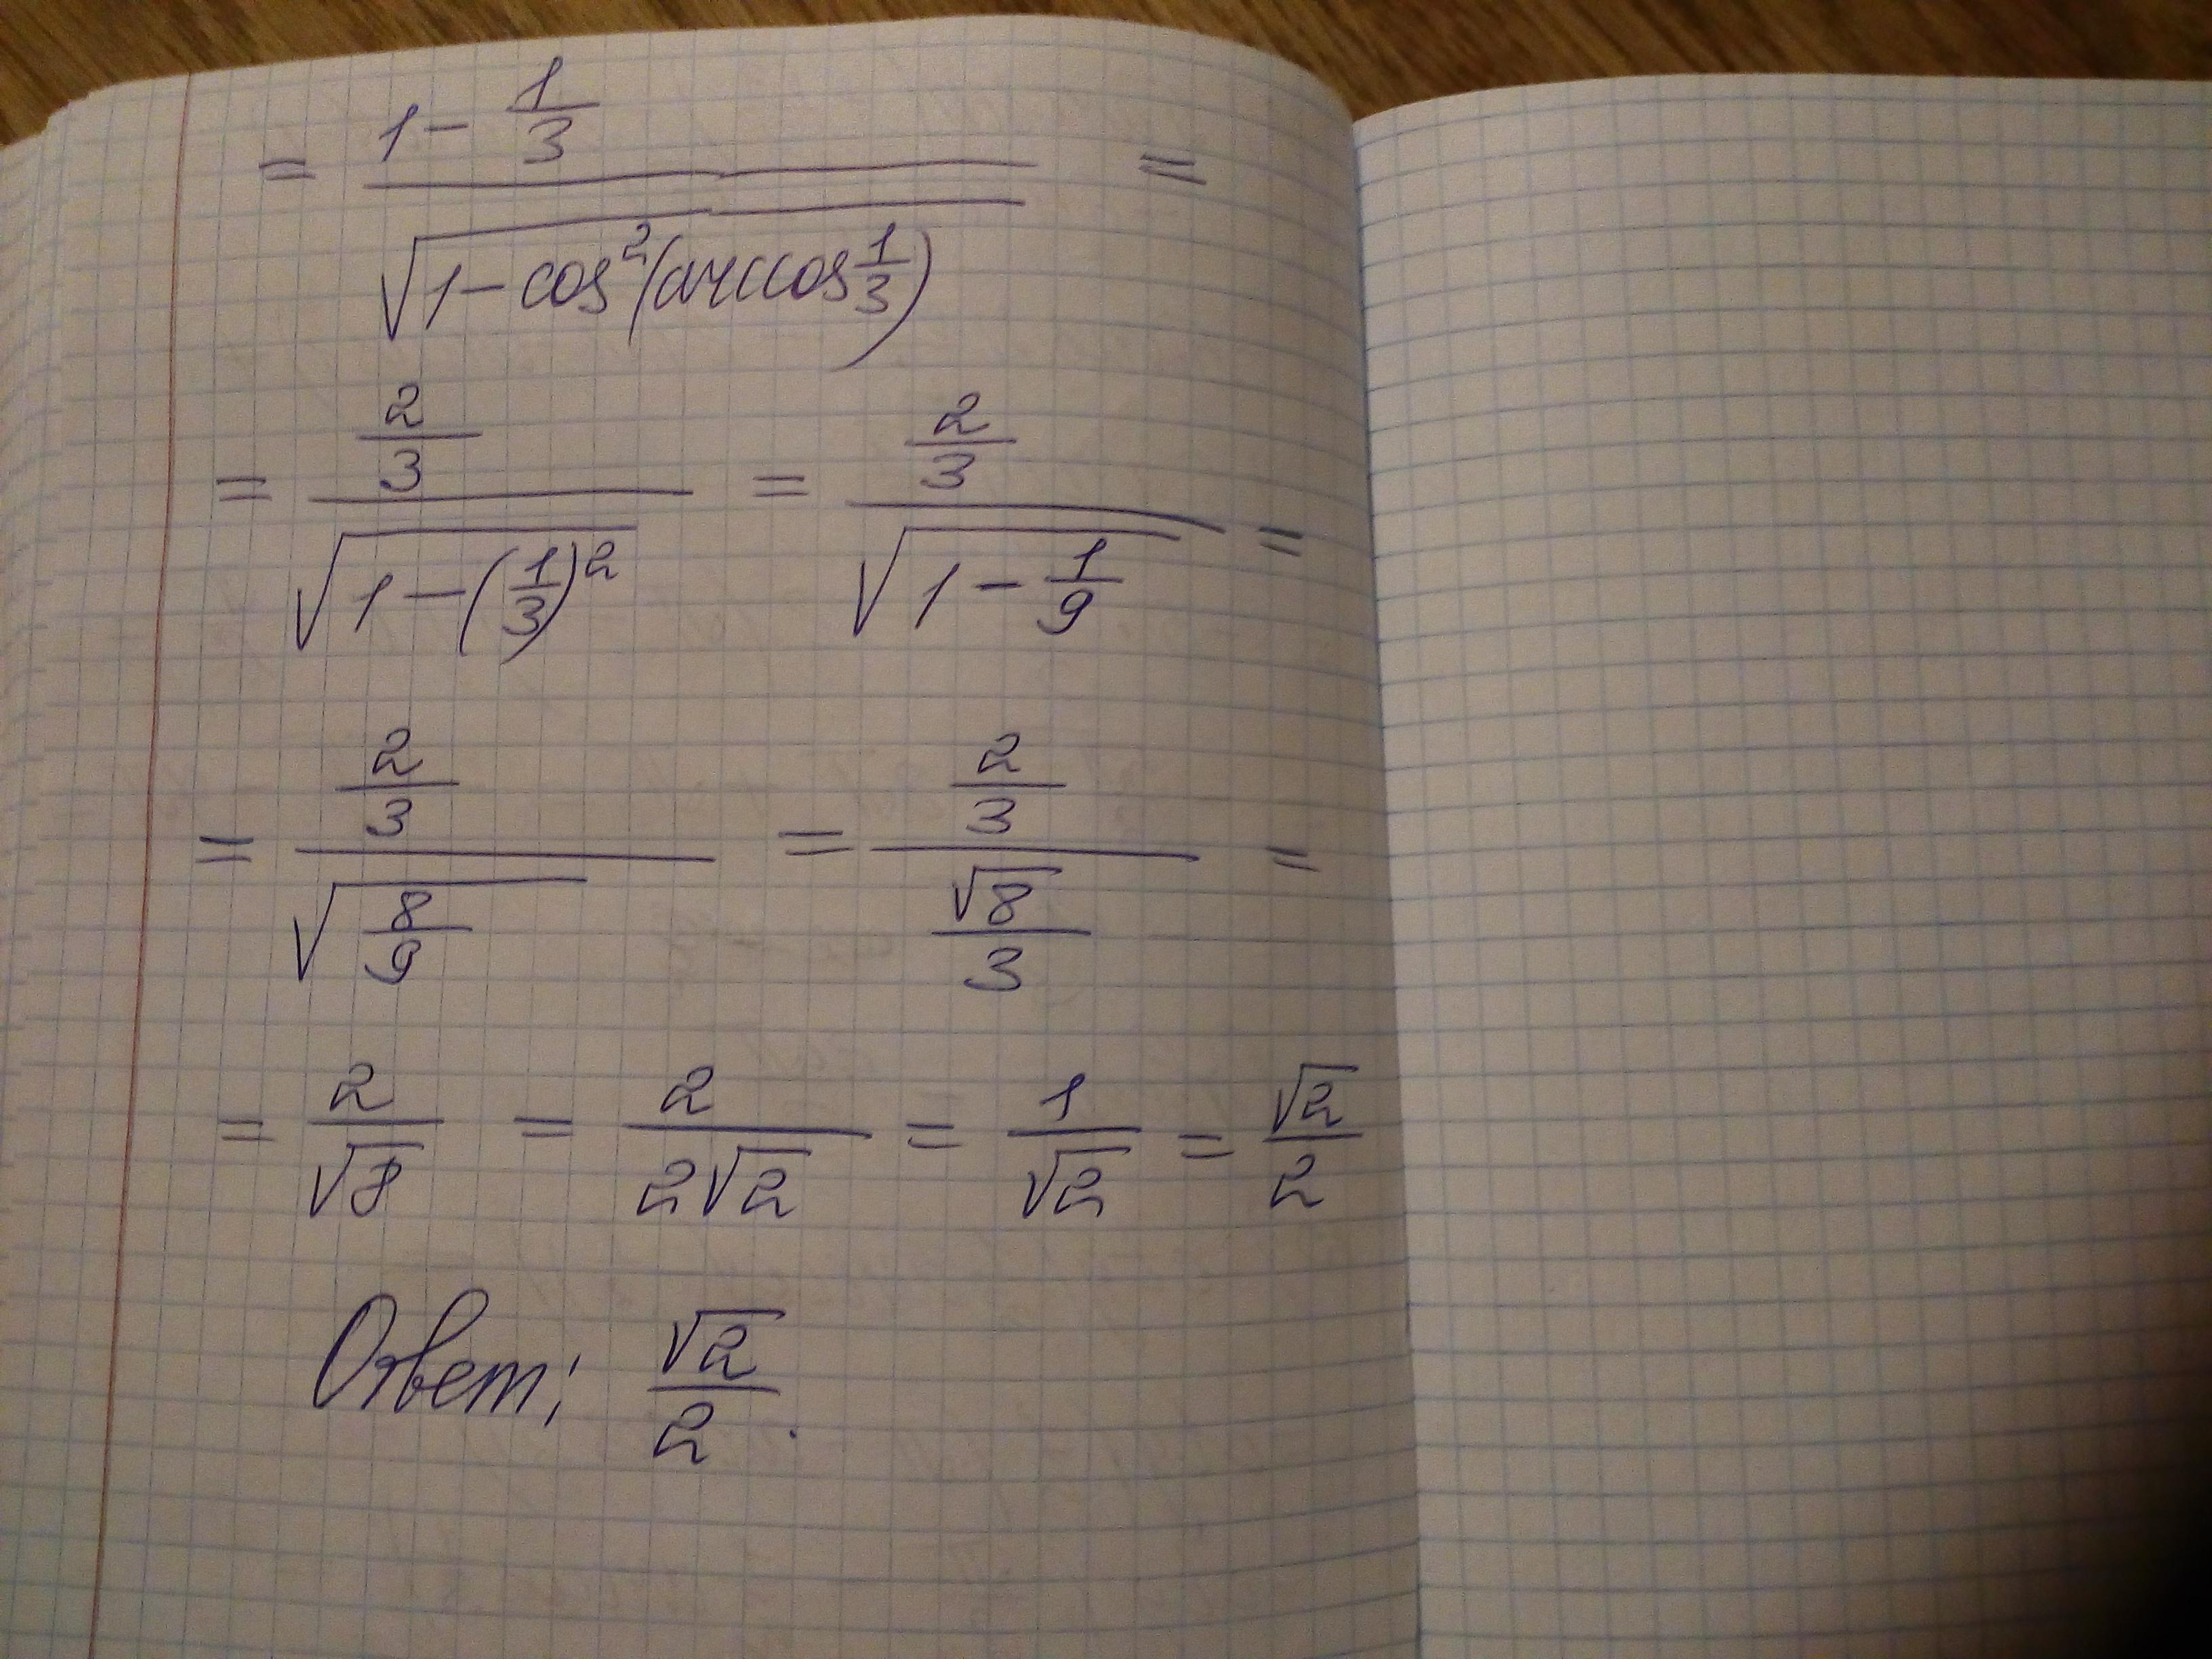 = (1 - 1/3) / √(1 - cos²(arccos 1/3)) =
= (2/3) / √(1 - (1/3)²) = (2/3) / √(1 - 1/9) =
= (2/3) / √(8/9) = (2/3) / (√8/3) =
= 2/√8 = 2/(2√2) = 1/√2 = √2/2
Ответ: √2/2.